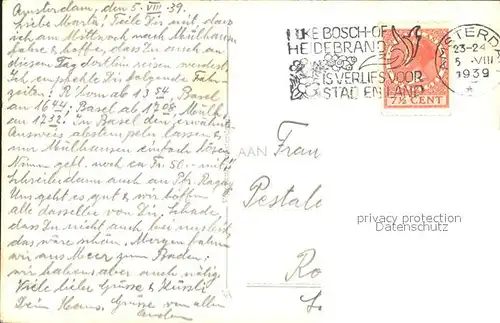 Amsterdam, den 5. VIII. 39.
Liebe Marta! Teile Dir mit, dass
ich am Mittwoch nach Mülhausen
fahre & hoffe, dass Du auch an
diesem Tag dorthin reisen werdest.
Ich empfehle Dir folgende Fahr-
zeiten: R'horn ab 13 54 Basel
an 16 44: Basel ab 17 08, Mülh.
an 17 32. In Basel den
Ausweis abstempeln lassen &
nur Mülhausen einfach lösen
Nimm gefl. noch ca Fr. 50.- mit!
Schreibe dann auch an Pfr. Ragaz.
Uns geht es gut & wir hoffen
alle dasselbe von Dir. Schade,
dass Du nicht auch hier
das wäre schön. Morgen fahren
wir ans Meer zum Baden;
wir haben es aber auch nötig.
Viele liebe Grüsse & Küssli
Dein Hans. Grüsse von allen
andern
ELKE BOSCH- OF
HEIDEBRAND
IS VERLIES VOOR
STAD EN LAND
7½ CENT
STERD
23-24
5 VIII
1939
AAN
Frau
Pestalo
Ro
privacy protection
Datenschutz